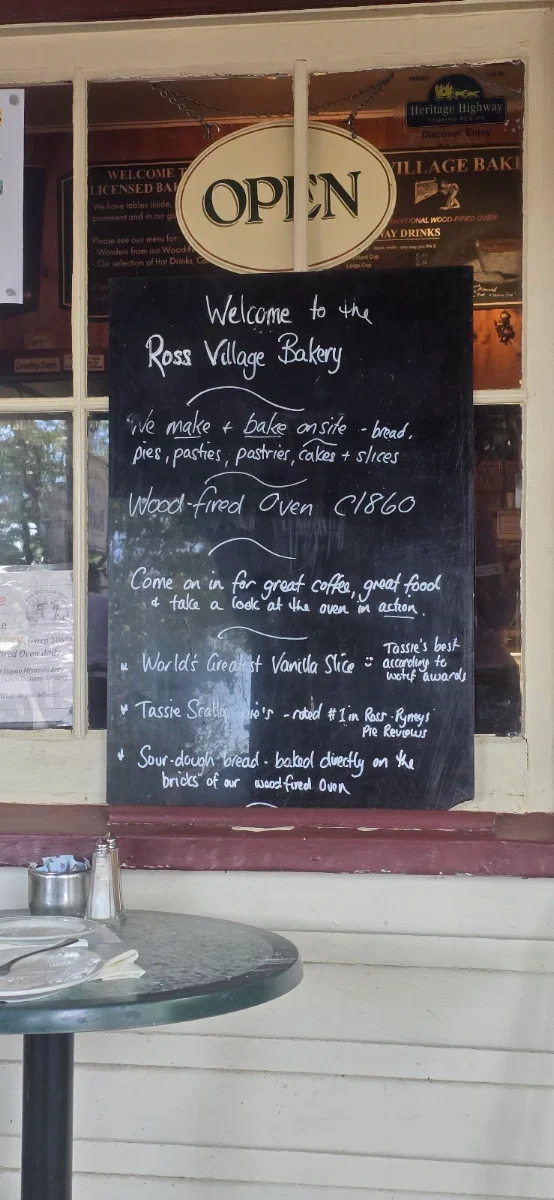 Heritage Highway
TOURISM REGION
Discover, Enjoy
OPEN
WELCOME T
LICENSED BA
We have tables inside,
Please see our menu for:
VILLAGE BAK
WOOD-FIRED OVEN
DRINKS
Welcome to the
Ross Village Bakery
We make + bake onsite - bread,
pies, pasties, pastries, cakes + slices
Wood-fired Oven C1860
Come on in for great coffee, great food
+ take a look at the oven in action.
* World's Greatest Vanilla Slice :: Tassie's best
according to
wotif awards
* Tassie Scallop Pie's - rated #1 in Ross - Pyneys
Pie Reviews
* Sour-dough bread - baked directly on the
bricks of our woodfired Oven